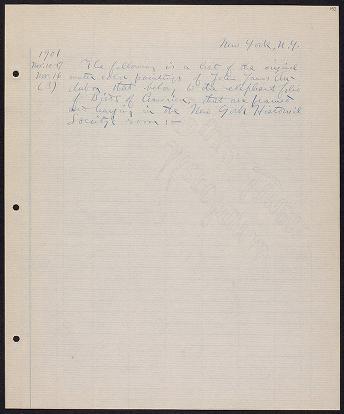 New York, N.Y.
1901
Nov. 10
Nov. 16
The following is a list of the original
water color paintings of John James Au-
dubon that belong to the elephant folio
of Birds of America, that are framed
and hanging in the New York Historical
Society's rooms :—